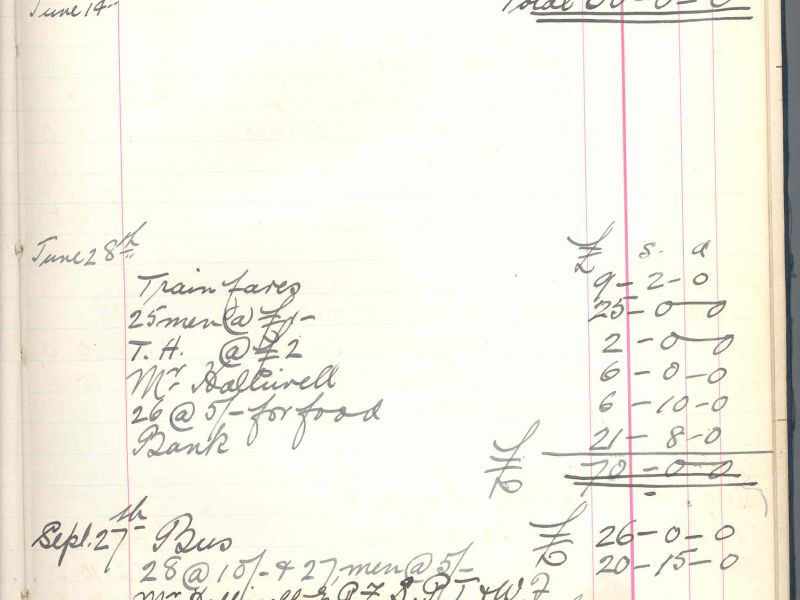 June 14th Total 60-0-0
June 28th £ s. d
Train fares 9-2-0
25 men @ £1- 25-0-0
T. H. @ £2 2-0-0
Mr. Halliwell 6-0-0
26 @ 5/- for food 6-10-0
Bank 21-8-0
£ 70-0-0
Sept. 27th Bus £ 26-0-0
28 @ 10/- & 27, men @ 5/- 20-15-0
Mr Halliwell